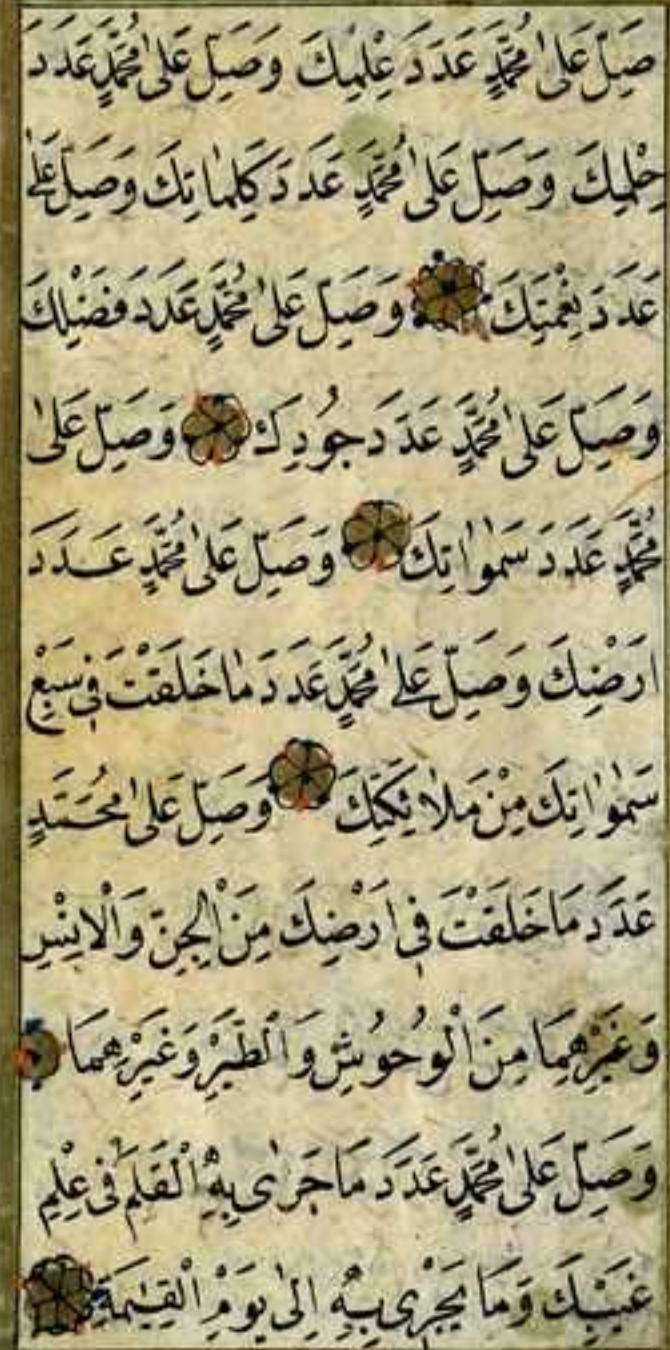 صَلِّ عَلٰى مُحَمَّدٍ عَدَدَ عِلْمِكَ وَصَلِّ عَلٰى مُحَمَّدٍ عَدَدَ
حِلْمِكَ وَصَلِّ عَلٰى مُحَمَّدٍ عَدَدَ كَلِمَاتِكَ وَصَلِّ عَلٰى
عَدَدَ نِعْمَتِكَ وَصَلِّ عَلٰى مُحَمَّدٍ عَدَدَ فَضْلِكَ
وَصَلِّ عَلٰى مُحَمَّدٍ عَدَدَ جُودِكَ وَصَلِّ عَلٰى
مُحَمَّدٍ عَدَدَ سَمٰوَاتِكَ وَصَلِّ عَلٰى مُحَمَّدٍ عَدَدَ
اَرْضِكَ وَصَلِّ عَلٰى مُحَمَّدٍ عَدَدَ مَا خَلَقْتَ فِى سَبْعِ
سَمٰوَاتِكَ مِنْ مَلَائِكَتِكَ وَصَلِّ عَلٰى مُحَمَّدٍ
عَدَدَ مَا خَلَقْتَ فِى اَرْضِكَ مِنَ الْجِنِّ وَالْاِنْسِ
وَغَيْرِهِمَا مِنَ الْوُحُوشِ وَالطَّيْرِ وَغَيْرِهِمَا
وَصَلِّ عَلٰى مُحَمَّدٍ عَدَدَ مَا جَرٰى بِهِ الْقَلَمُ فِى عِلْمِ
غَيْبِكَ وَمَا يَجْرِى بِهِ اِلٰى يَوْمِ الْقِيٰمَةِ